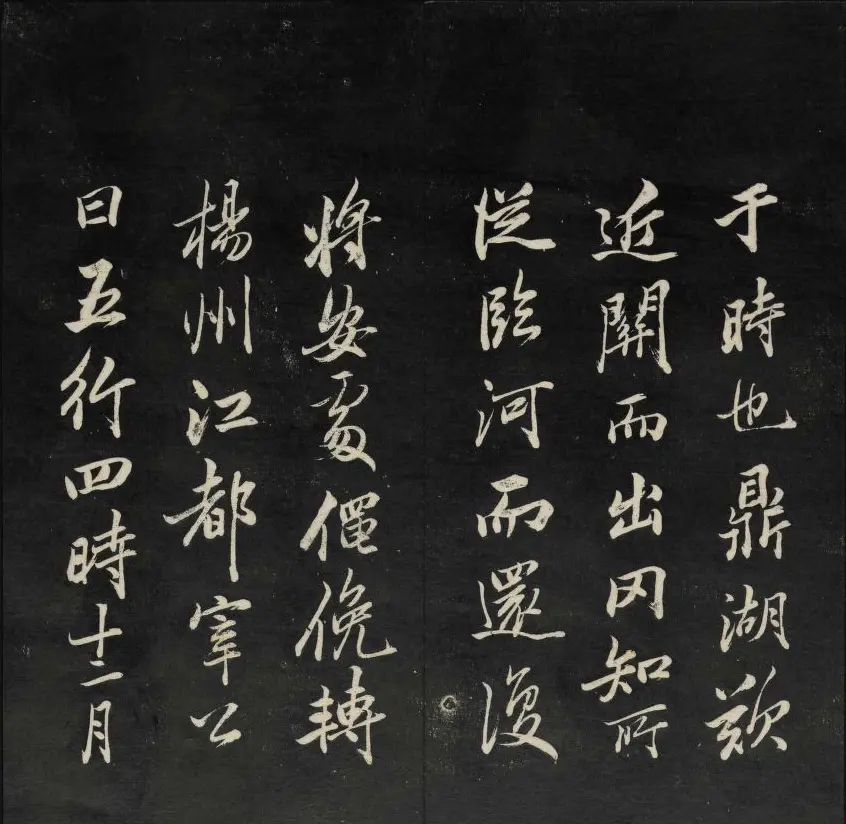 于時也鼎湖歘
近關而出冈知所
從臨河而還復
將安處僶俛轉
楊州江都宰公
曰五行四時十二月